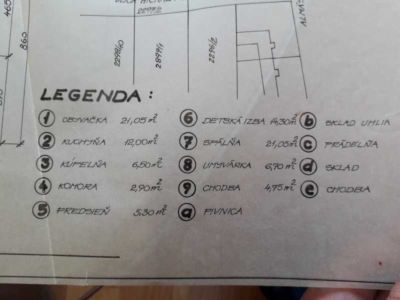 465
860
2298/10
2899/1
2296/2
LEGENDA :
1 OBÝVAČKA 21,05 m²
2 KUCHYŇA 12,00 m²
3 KÚPEĽŇA 6,50 m²
4 KOMORA 2,90 m²
5 PREDSIEŇ 5,30 m²
6 DETSKÁ IZBA 14,30 m²
7 SPÁLŇA 21,05 m²
8 UMYVÁRKA 6,70 m²
9 CHODBA 4,75 m²
a PIVNICA
b SKLAD UHLIA
c PRÁDELŇA
d SKLAD
e CHODBA